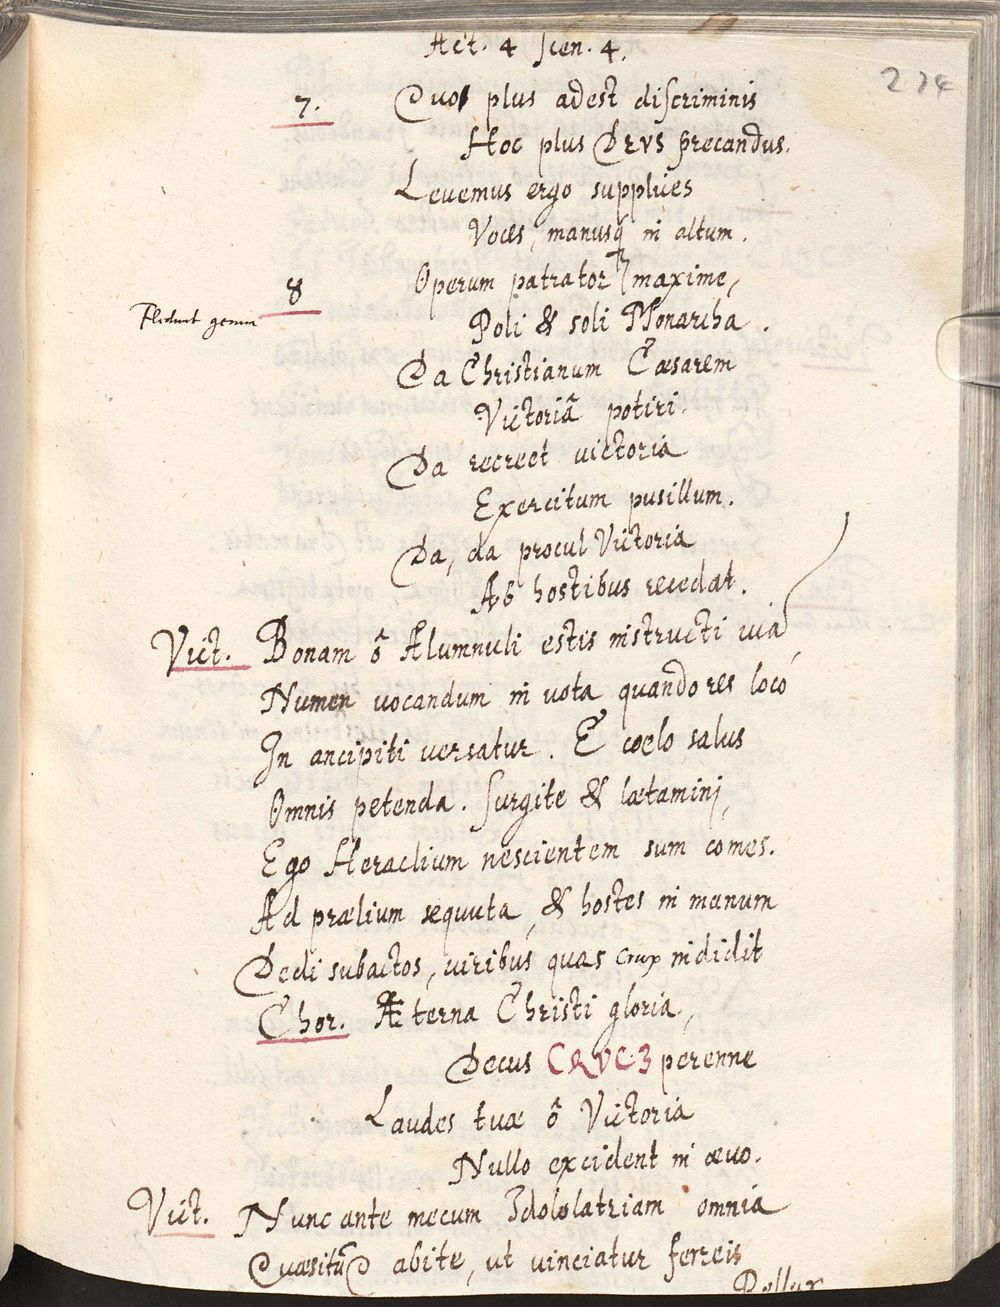 Act. 4 Scen. 4.
274
7. Quo plus adest discriminis
Hoc plus DEVS precandus.
Levemus ergo supplices
Voces, manusq̃ in altum.
8 Operum patrator maxime,
Flectunt genua
Poli & soli Monarcha.
Da Christianum Cæsarem
Victoriã potiri.
Da recreet victoria
Exercitum pusillum.
Da, da procul Victoria
Ab hostibus recedat.
Vict. Bonam ô Alumnuli estis instructi viâ
Numen vocandum in vota quando res locô
In ancipiti versatur. E coelo salus
Omnis petenda. Surgite & lætaminj,
Ego Heraclium nescientem sum comes.
Ad prælium sequuta, & hostes in manum
Dedi subactos, viribus quas Crux indidit
Chor. Æterna Christi gloria,
Decus CRVCIS perenne
Laudes tuæ ô Victoria
Nullo excident in ævo.
Vict. Nunc ante mecum Idololatriam omnia
Quæsitũ abite, ut vinciatur ferreis